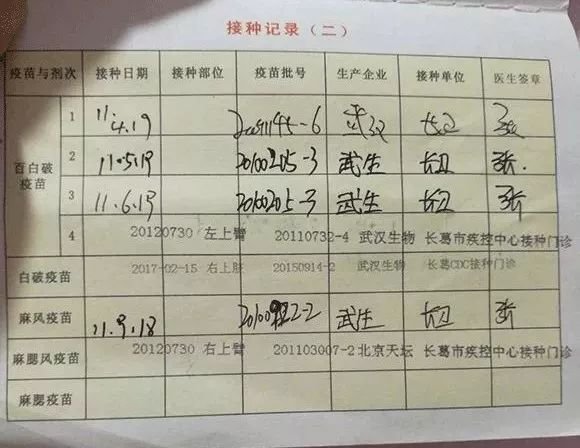 接种记录（二）
疫苗与剂次 接种日期 接种部位 疫苗批号 生产企业 接种单位 医生签章
百白破疫苗
1 11.4.19 长卫 张
2 11.5.19 20100205-3 武生 长卫 张
3 11.6.19 20100205-3 武生 长卫 张
4 20120730 左上臂 20110732-4 武汉生物 长葛市疾控中心接种门诊
白破疫苗 2017-02-15 右上肢 20150914-2 武汉生物 长葛CDC接种门诊
麻风疫苗 11.9.18 武生 长卫 张
麻腮风疫苗 20120730 右上臂 201103007-2 北京天坛 长葛市疾控中心接种门诊
麻腮疫苗